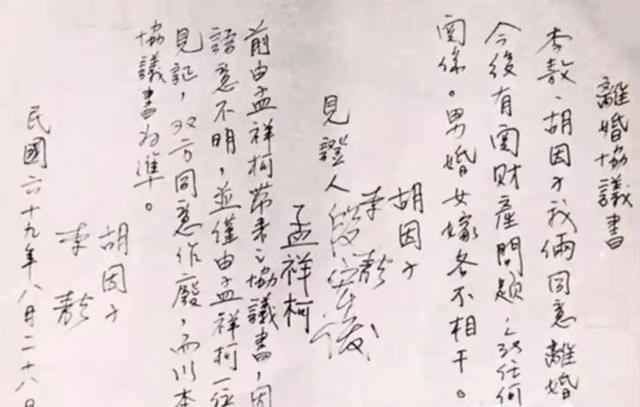 離婚協議書
李敖、胡因子我倆同意離婚
今後有関財產問題，及任何
関係。男婚女嫁各不相干。
胡因子
李敖
見證人段宏俊
孟祥柯
前由孟祥柯帶来之協議書，因
語意不明，並僅由孟祥柯一
見証，双方同意作廢，而以本
協議書為準。
胡因子
李敖
民國六十九年八月二十八日